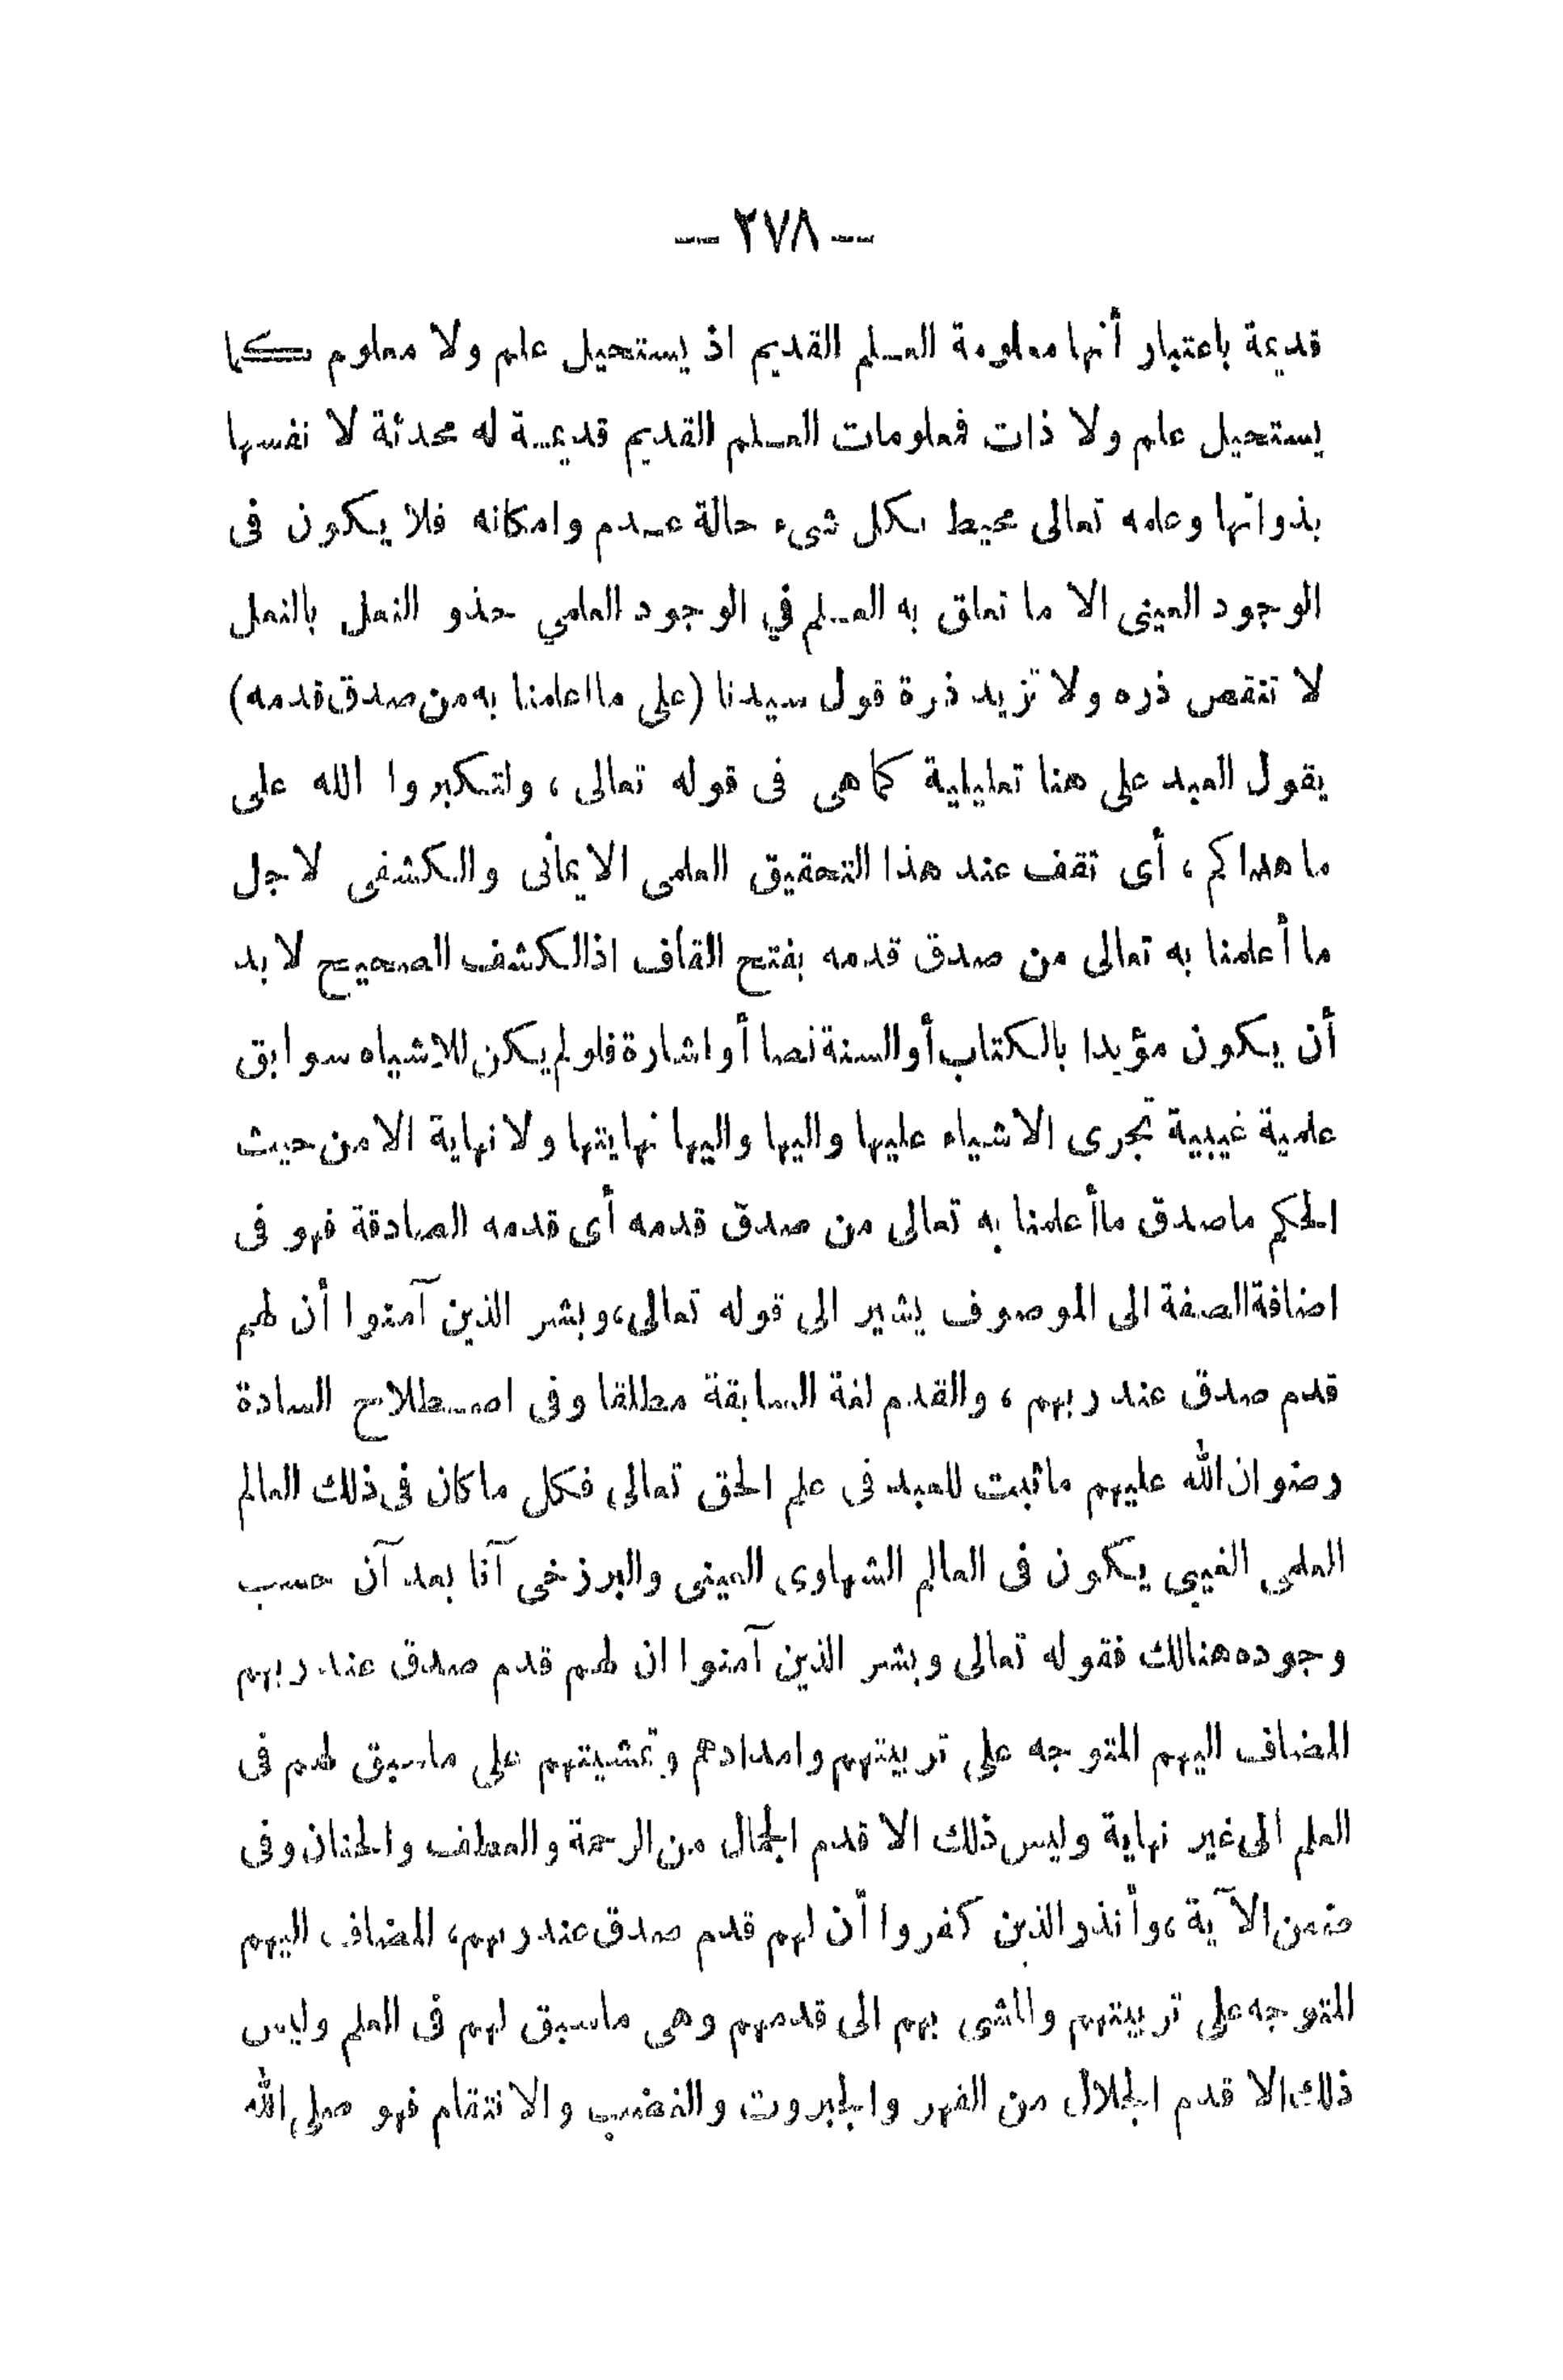 — ٢٧٨ —
قديمة باعتبار أنها معلومة العلم القديم اذ يستحيل علم ولا معلوم كما
يستحيل علم ولا ذات فمعلومات العلم القديم قديمة له محدثة لا نفسها
بذواتها وعلمه تعالى محيط بكل شىء حالة عدم وامكانه فلا يكون فى
الوجود العينى الا ما تعلق به العلم في الوجود العلمي حذو النعل بالنعل
لا تنقص ذره ولا تزيد ذرة قول سيدنا (على ما اعلمنا به من صدق قدمه)
يقول العبد على هنا تعليلية كما هى فى قوله تعالى ، ولتكبروا الله على
ما هداكم ، أى تقف عند هذا التحقيق العلمى الايمانى والكشفى لاجل
ما أعلمنا به تعالى من صدق قدمه بفتح القاف اذ الكشف الصحيح لا بد
أن يكون مؤيدا بالكتاب أو السنة نصا أو اشارة فلو لم يكن للاشياء سوابق
علمية غيبية تجرى الاشياء عليها واليها واليها نهايتها ولا نهاية الا من حيث
الحكم ماصدق ماأعلمنا به تعالى من صدق قدمه أى قدمه الصادقة فهو فى
اضافة الصفة الى الموصوف يشير الى قوله تعالى، وبشر الذين آمنوا أن لهم
قدم صدق عند ربهم ، والقدم لغة السابقة مطلقا وفى اصطلاح السادة
رضوان الله عليهم ماثبت للعبد فى علم الحق تعالى فكل ماكان فى ذلك العالم
العلمى الغيبى يكون فى العالم الشهاوى العينى والبرزخى آنا بعد آن حسب
وجوده هنالك فقوله تعالى وبشر الذين آمنوا ان لهم قدم صدق عند ربهم
المضاف اليهم المتوجه على تربيتهم وامدادهم وتمشيتهم على ماسبق لهم فى
العلم الى غير نهاية وليس ذلك الا قدم الجمال من الرحمة والعطف والحنان وفى
ضمن الآية ، وأنذر الذين كفروا أن لهم قدم صدق عند ربهم، المضاف اليهم
المتوجه على تربيتهم والمشى بهم الى قدمهم وهى ماسبق لهم فى العلم وليس
ذلك الا قدم الجلال من القهر والجبروت والغضب والانتقام فهو صلى الله